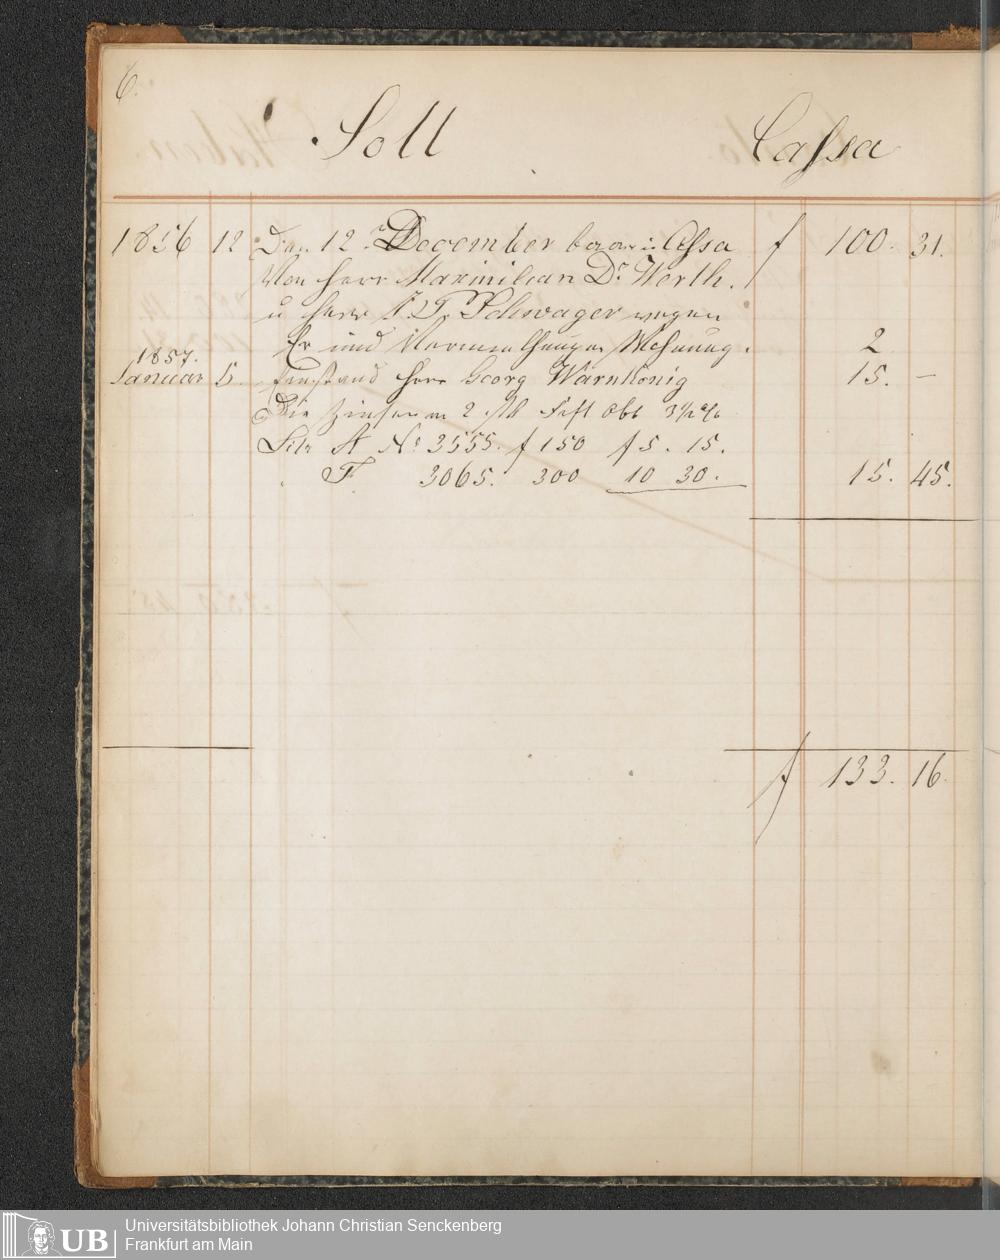 6.
Soll Cassa
1856 12 Den 12. December baar in Cassa f 100. 31.
Von Herr Maximilian Dr. Werth.
u Herr J. Schwager wegen
Er und Wohnung. 2
1857.
Januar 5. Herr Georg Warnkönig 15. —
Die Zinsen 2 Obl 3½ %
Litr A No 3555. f 150 f 5. 15.
F 3065. 300 10 30. 15. 45.
f 133. 16
UB Universitätsbibliothek Johann Christian Senckenberg
Frankfurt am Main